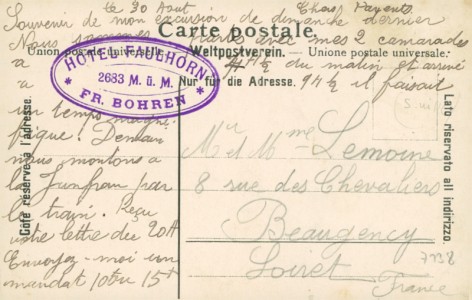 Le 30 Aout Chers Parents
Souvenir de mon excursion de dimanche dernier
Carte postale.
Nous sommes partis avec mes 2 camarades
Union postale universelle. Weltpostverein. — Unione postale universale.
à 4 h ½ du matin et arrivé
HOTEL FAULHORN
2683 M. ü. M.
FR. BOHREN
Nur für die Adresse.
à 9 h ½ il faisait
un temps magni-
fique. Demain
nous montons à
la Jungfrau par
le train. Reçu
votre lettre du 20 At
Envoyez-moi un
mandat 10 ou 15 f
Côté réservé à l'adresse.
Lato riservato all indirizzo.
Mr et Mme Lemoine
8 rue des Chevaliers
Beaugency
Loiret
France
7738